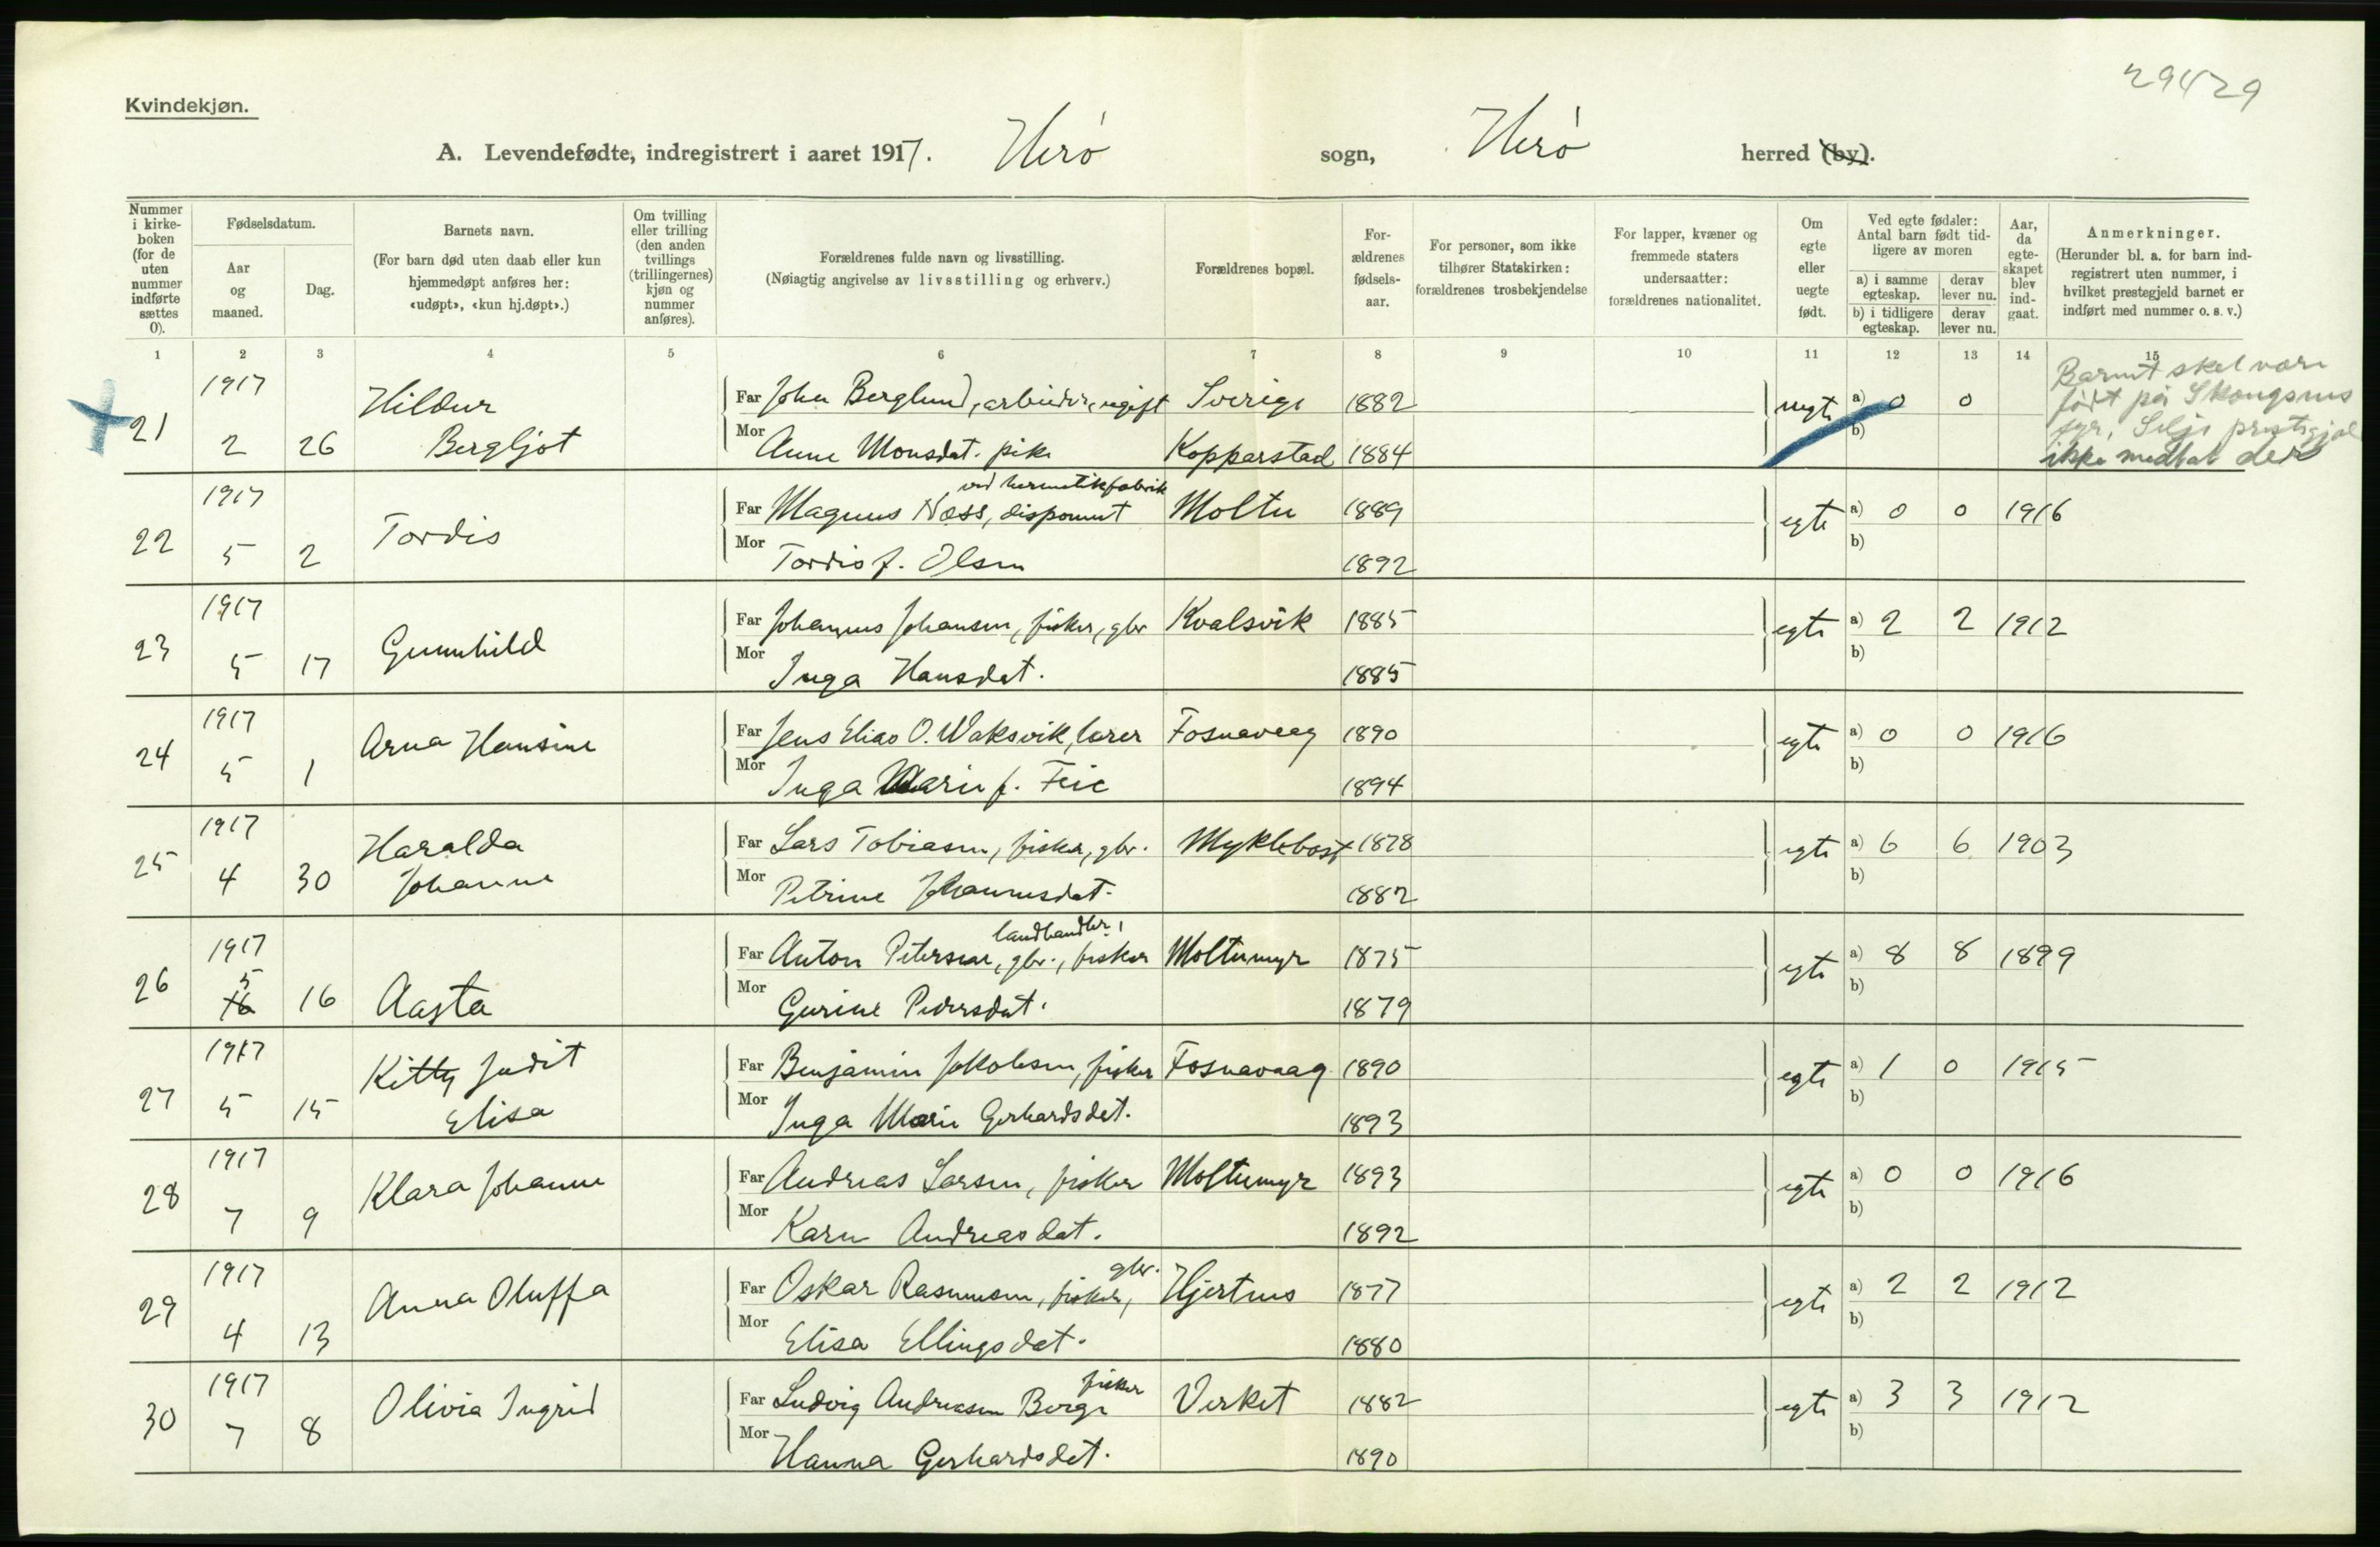 29429
Kvindekjøn.
A. Levendefødte, indregistrert i aaret 1917. Herø sogn, Herø herred (by).
Nummer i kirkeboken (for de uten nummer indførte sættes 0).
Fødselsdatum.
Aar og maaned.
Dag.
Barnets navn.
(For barn død uten daab eller kun hjemmedøpt anføres her: «udøpt», «kun hj.døpt».)
Om tvilling eller trilling (den anden tvillings (trillingernes) kjøn og nummer anføres).
Forældrenes fulde navn og livsstilling.
(Nøiagtig angivelse av livsstilling og erhverv.)
Forældrenes bopæl.
Forældrenes fødselsaar.
For personer, som ikke tilhører Statskirken: forældrenes trosbekjendelse
For lapper, kvæner og fremmede staters undersaatter: forældrenes nationalitet.
Om egte eller uegte født.
Ved egte fødsler: Antal barn født tidligere av moren
a) i samme egteskap. derav lever nu.
b) i tidligere egteskap. derav lever nu.
Aar, da egteskapet blev indgaat.
Anmerkninger.
(Herunder bl. a. for barn indregistrert uten nummer, i hvilket prestegjeld barnet er indført med nummer o. s. v.)
1 2 3 4 5 6 7 8 9 10 11 12 13 14 15
21 1917 2 26 Hildur Bergljot
Far John Berglund, arbeider, ugift Sverige 1882 uegte a) 0 0
Mor Anne Monsdat. pike Kopparstad 1884 b)
Barnet skal være
født på Skongsnes
fyr, Selje prestegjel
ikke medtat der
22 1917 5 2 Tordis
ved hermetikfabrik
Far Magnus Næss, disponent Moltu 1889 egte a) 0 0 1916
Mor Tordis f. Olsen 1892 b)
23 1917 5 17 Gunnhild
Far Johannes Johansen, fisker, gbr Kvalsvik 1885 egte a) 2 2 1912
Mor Inga Hansdat. 1885 b)
24 1917 5 1 Arna Hansine
Far Jens Elias O. Waksvik, lærer Fosnavaag 1890 egte a) 0 0 1916
Mor Inga Marie f. Feie 1894 b)
25 1917 4 30 Haralda Johanne
Far Lars Tobiasen, fisker, gbr. Myklebost 1878 egte a) 6 6 1903
Mor Petrine Johannesdat. 1882 b)
26 1917 5 16 Aasta
landhandler,
Far Anton Petersen, gbr., fisker Moltumyr 1875 egte a) 8 8 1899
Mor Gurine Pedersdat. 1879 b)
27 1917 5 15 Kitty Judit Elisa
Far Benjamin Jakobsen, fisker Fosnavaag 1890 egte a) 1 0 1915
Mor Inga Marie Gerhardsdat. 1893 b)
28 1917 7 9 Klara Johanne
Far Andreas Larsen, fisker Moltumyr 1893 egte a) 0 0 1916
Mor Karen Andreasdat. 1892 b)
29 1917 4 13 Anna Oluffa
gbr.
Far Oskar Rasmussen, fisker, Hjertnes 1877 egte a) 2 2 1912
Mor Elisa Ellingsdat. 1880 b)
30 1917 7 8 Olivia Ingrid
fisker
Far Ludvig Andreasen Berge Verket 1882 egte a) 3 3 1912
Mor Hanna Gerhardsdat. 1890 b)